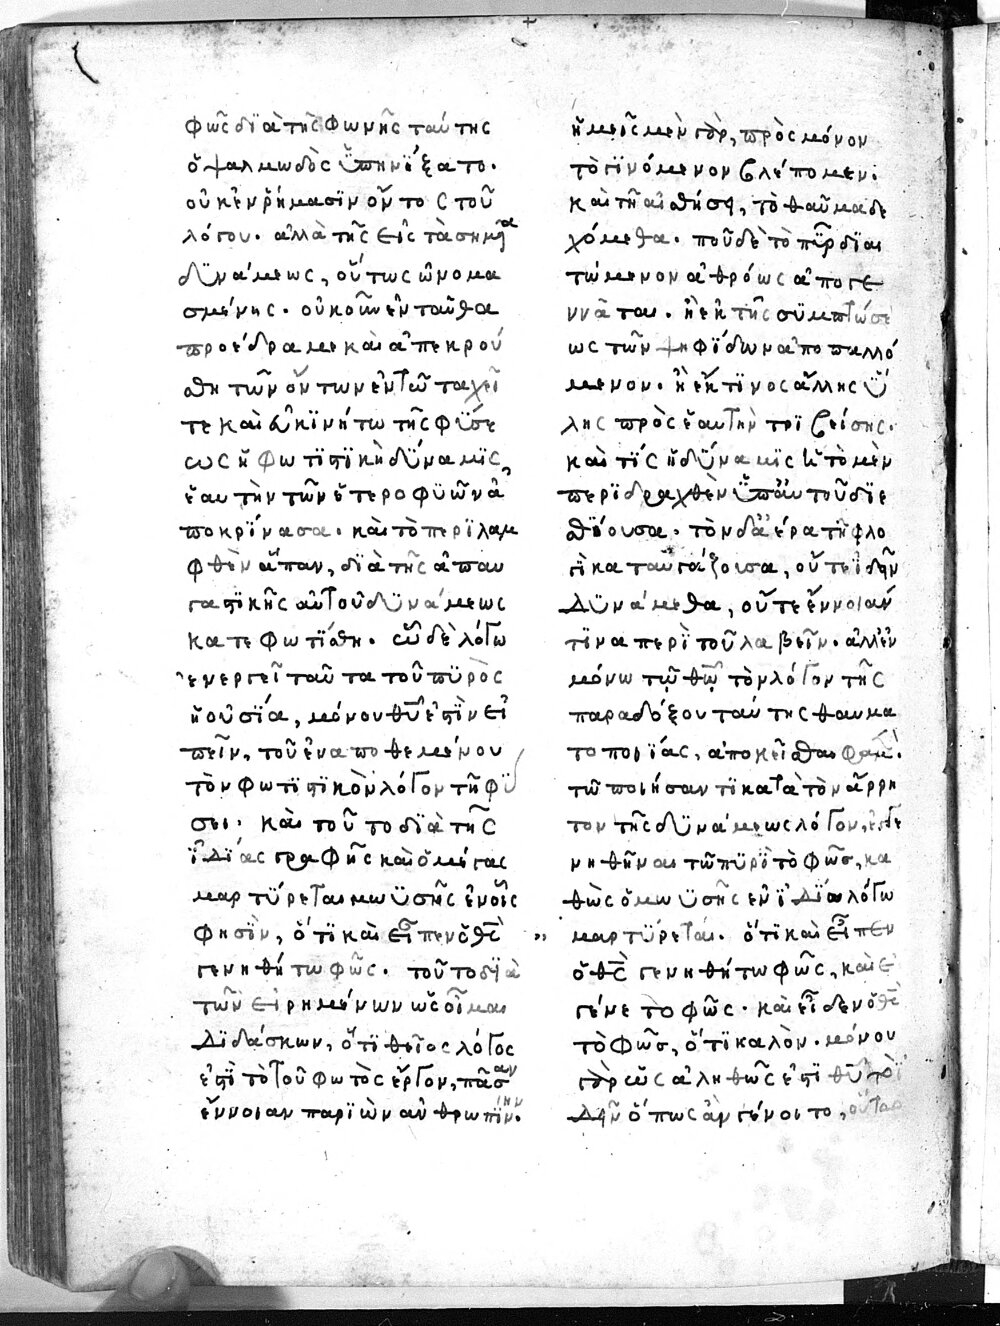 φῶς διὰ τῆς φωνῆς ταύτης
ὁ ψαλμωδὸς ὑπηνίξατο·
οὐκ ἐν ῥήμασιν ὄντος τοῦ
λόγου· ἀλλὰ τῆς εἰς τὰ σημεῖα
δυνάμεως, οὕτως ὠνομα
σμένης· οὐκοῦν ἐνταῦθα
προέδραμε καὶ ἀπεκρού
σθη τῶν ὄντων ἐν τῶ ταχεῖ
τε καὶ εὐκινήτω τῆς φύσε
ως ἡ φωτιστικὴ δύναμις
ἑαυτὴν τῶν ἑτεροφυῶν ἀ
ποκρίνασα· καὶ τὸ περιλαμ
φθὲν ἅπαν, διὰ τῆς ἀπαυ
γαστικῆς αὐτοῦ δυνάμεως
κατεφωτίσθη· ὧ δὲ λόγω
ἐνεργεῖ ταῦτα τοῦ πυρὸς
ἡ οὐσία, μόνου θῦ ἐστὶν εἰ
πεῖν, τοῦ ἐναποθεμένου
τὸν φωτιστικὸν λόγον τῆ φύ
σει· καὶ τοῦτο διὰ τῆς
ἰδίας γραφῆς καὶ ὁ μέγας
μαρτύρεται μωϋσῆς ἐν οἷς
φησὶν, ὅτι καὶ εἶπεν ὁ θς
γενηθήτω φῶς· τοῦτο διὰ
τῶν εἰρημένων ὡς οἶμαι
διδάσκων, ὅτι θεῖος λόγος
ἐστὶ τὸ τοῦ φωτὸς ἔργον, πᾶσαν
ἔννοιαν παριὼν ἀνθρωπίνην·
ἡμεῖς μὲν γὰρ, πρὸς μόνον
τὸ γινόμενον βλέπομεν·
καὶ τῆ αἰσθήσει, τὸ θαῦμα δε
χόμεθα· ποῦ δὲ τὸ πῦρ διαι
τώμενον ἀθρόως ἀπογε
ννᾶται· ἢ ἐκ τῆς συμπτώσε
ως τῶν ψηφίδων ἀποπαλλό
μενον· ἢ ἐκ τινος ἄλλης ὕ
λης πρὸς ἑαυτὴν τριβείσης·
καὶ τίς ἡ δύναμις ἡ τὸ μὲν
περιδραχθὲν ὑπ' αὐτοῦ διε
σθίουσα· τὸν δ' ἀέρα τῆ φλο
γὶ καταυγάζουσα, οὔτε ἰδεῖν
δυνάμεθα, οὔτε ἔννοιάν
τινα περὶ τοῦ λαβεῖν· ἀλλ' ἐν
μόνω τῷ θῷ τὸν λόγον τῆς
παραδόξου ταύτης θαυμα
τοποιίας, ἀποκεῖσθαι φαμέν·
τῷ ποιήσαντι κατὰ τὸν ἄρρη
τον τῆς δυνάμεως λόγον,
νηθῆναι τῶ πυρὶ τὸ φῶς, κα
θὼς ὁ μωυσῆς ἐν ἰδίω λόγω
μαρτύρεται· ὅτι καὶ εἶπεν
ὁ θς γενηθήτω φῶς, καὶ ἐ
γένετο φῶς· καὶ εἶδεν ὁ θς
τὸ φῶς, ὅτι καλὸν· μόνου
γὰρ ὡς ἀληθῶς ἐστι θῦ τὸ ἰ
δεῖν ὅπως ἂν γένοιτο,